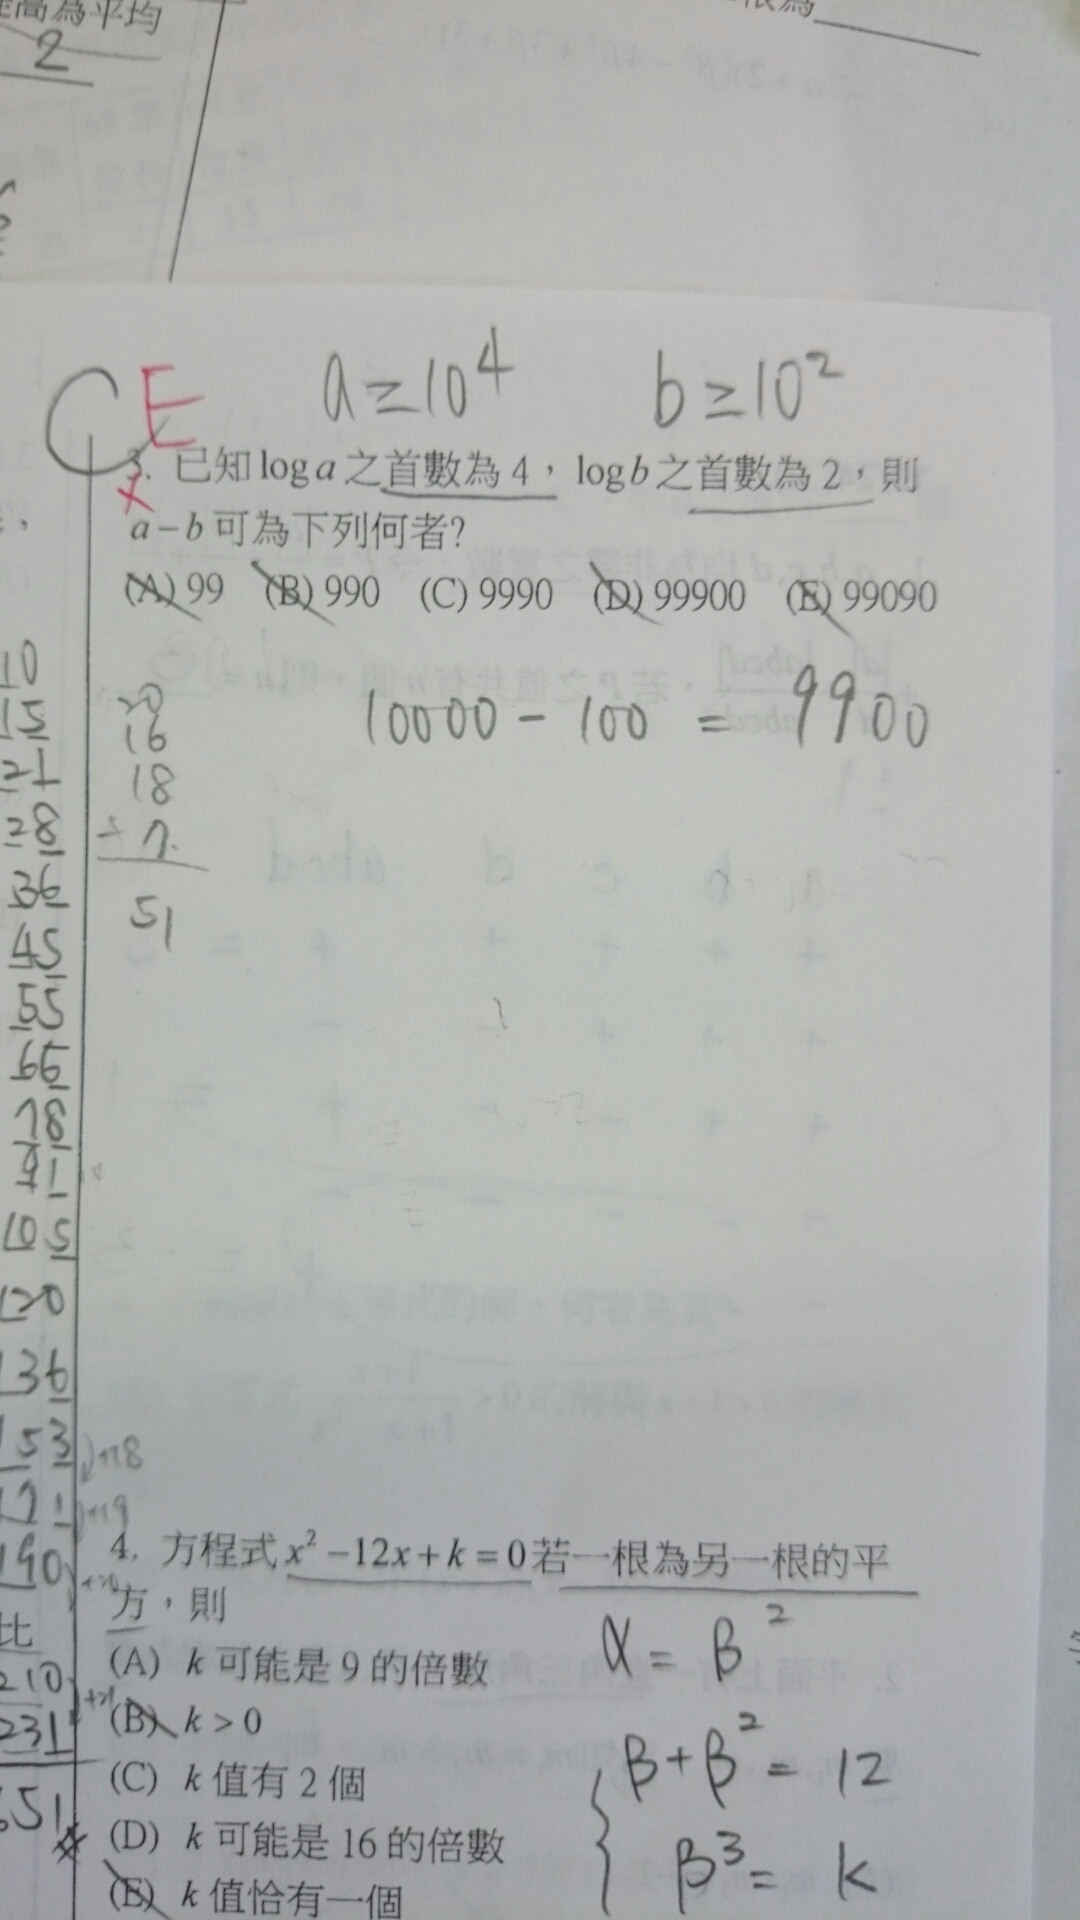 高為平均
2
根為
C E
a≥10⁴ b≥10²
3. 已知 log a 之首數為 4，log b 之首數為 2，則
a－b 可為下列何者?
(A) 99 (B) 990 (C) 9990 (D) 99900 (E) 99090
10000 - 100 = 9900
20
16
18
+ 7
51
10
15
21
28
36
45
55
66
78
91
105
120
136
153 +18
171 +19
190
比
210 +21
231
51
4. 方程式 x²－12x＋k＝0 若一根為另一根的平
方，則
(A) k 可能是 9 的倍數
(B) k＞0
(C) k 值有 2 個
(D) k 可能是 16 的倍數
(E) k 值恰有一個
α = β²
β+β² = 12
β³ = k